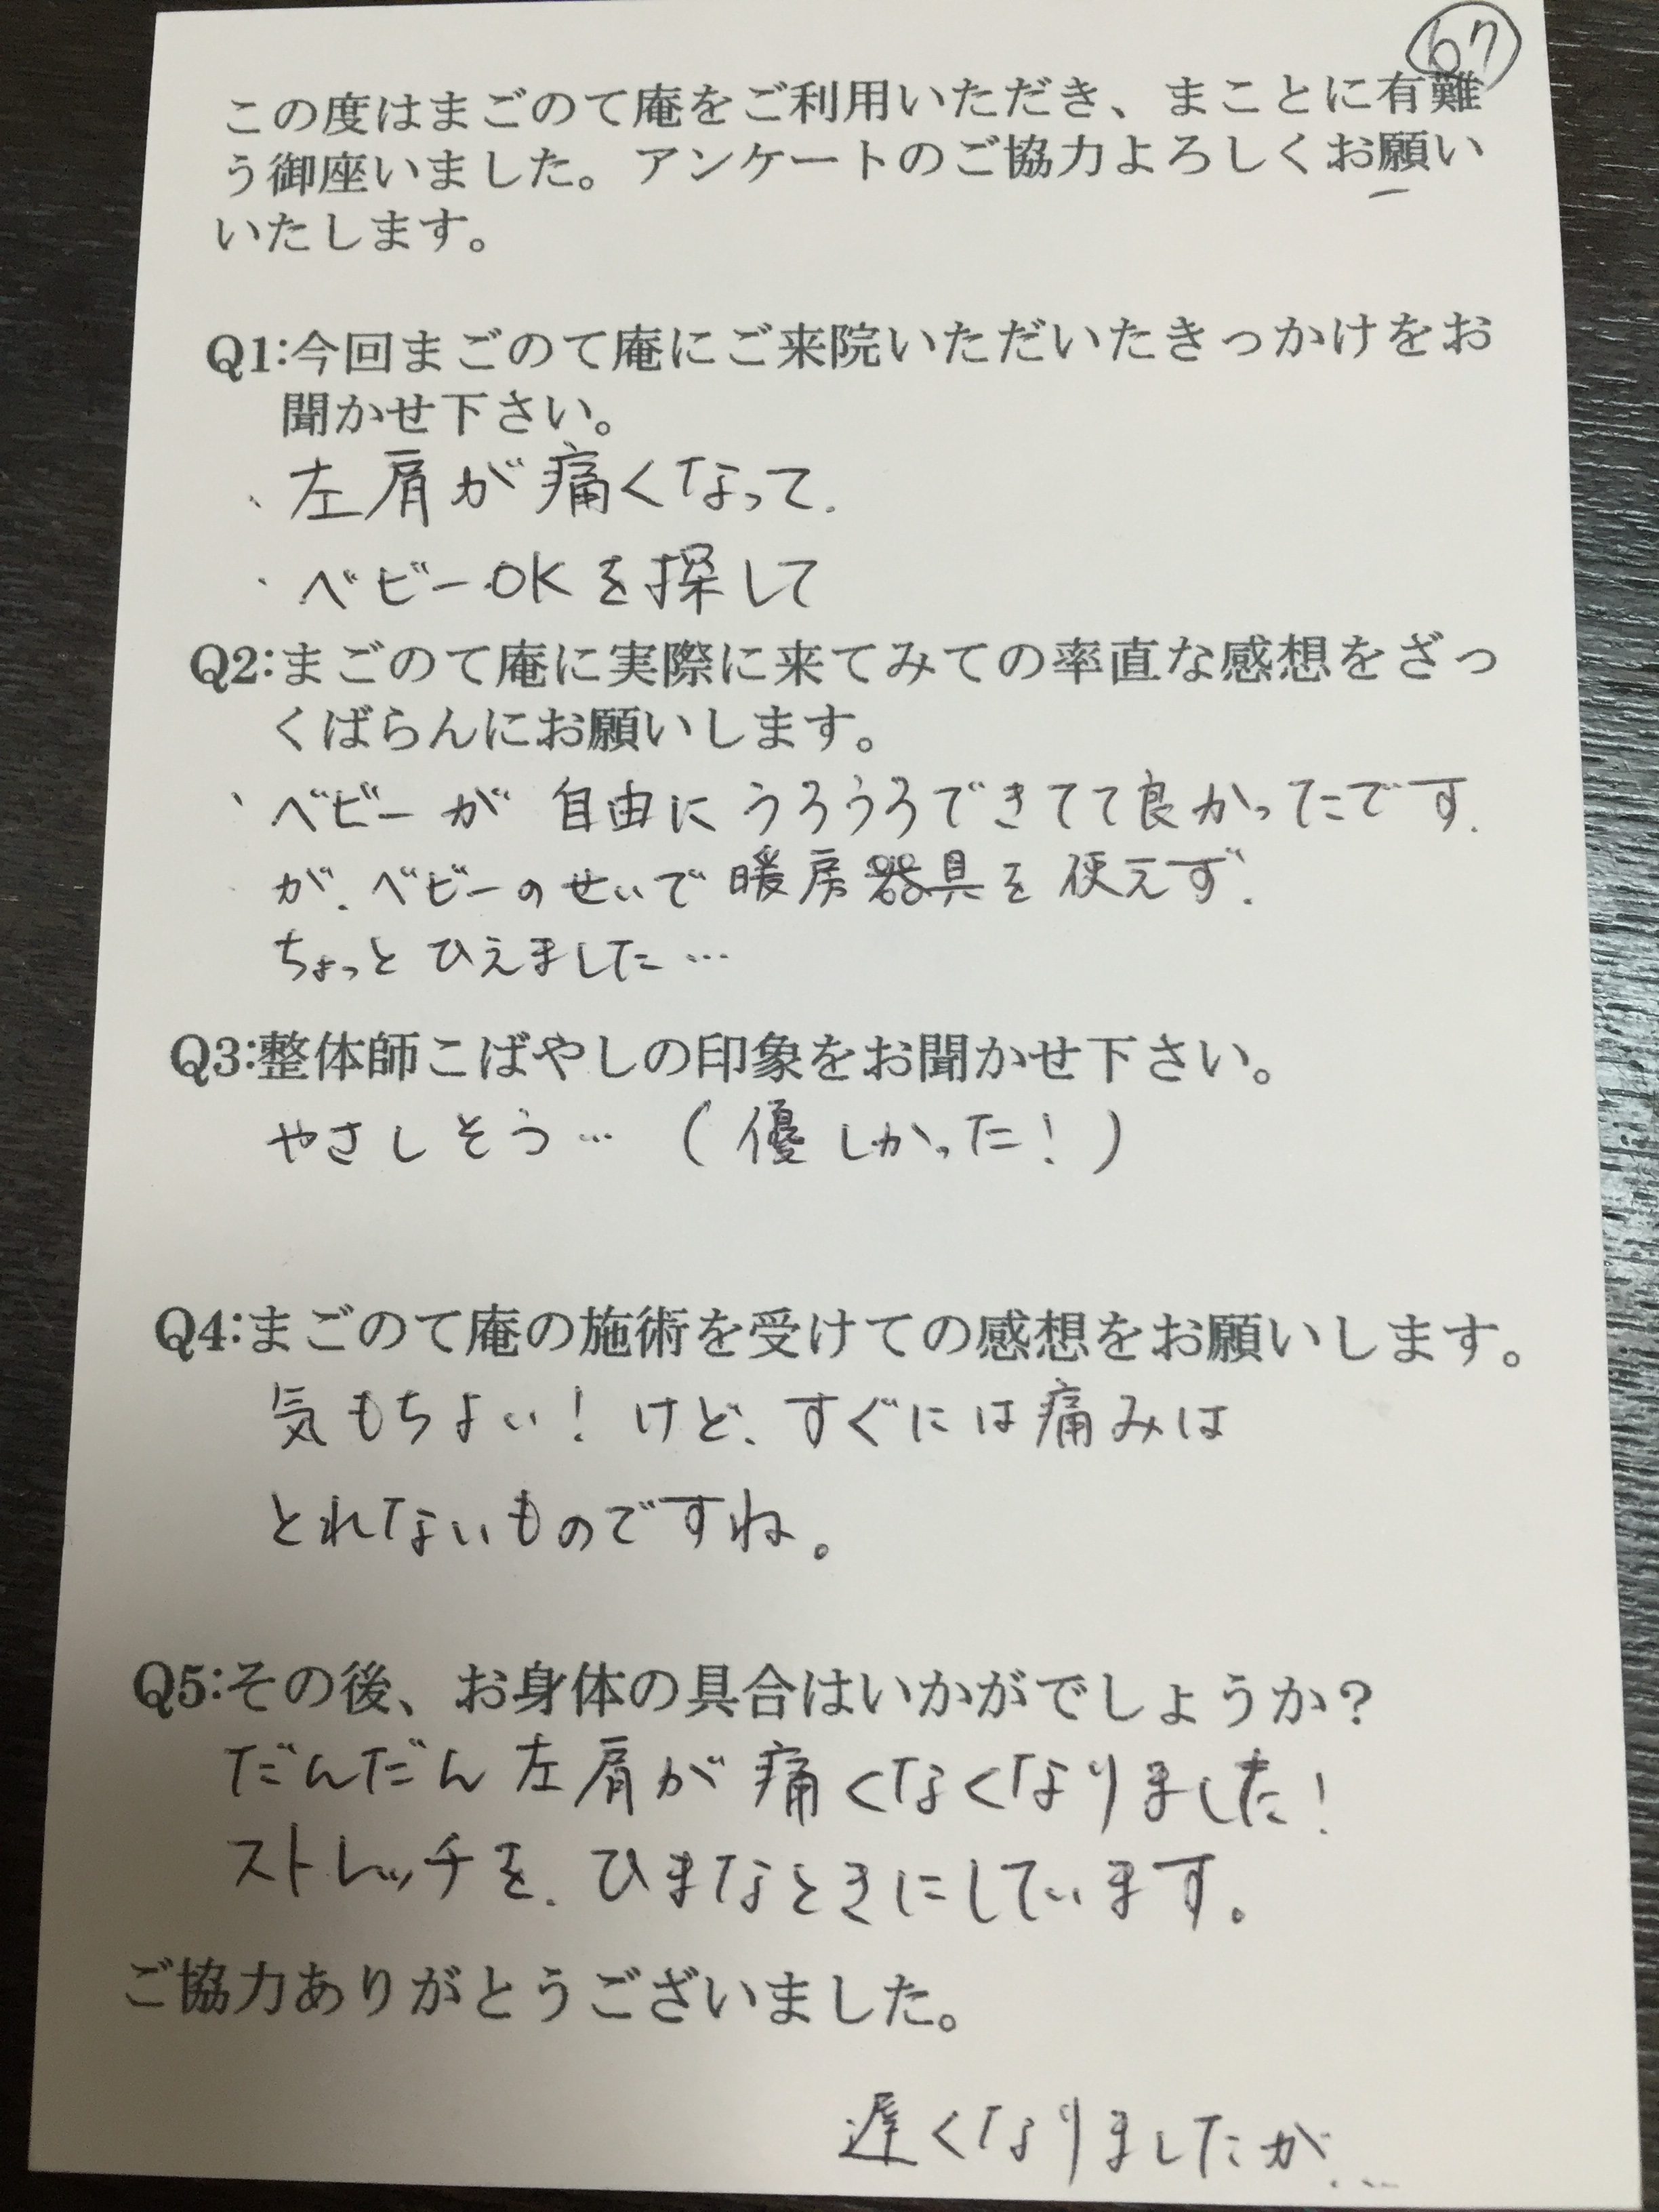 67
この度はまごのて庵をご利用いただき、まことに有難
う御座いました。アンケートのご協力よろしくお願い
いたします。
Q1:今回まごのて庵にご来院いただいたきっかけをお
聞かせ下さい。
、左肩が痛くなって.
・ベビーOKを探して
Q2:まごのて庵に実際に来てみての率直な感想をざっ
くばらんにお願いします。
、ベビーが自由にうろうろできてて良かったです.
が、ベビーのせいで暖房器具を使えず、
ちょっとひえました…
Q3:整体師こばやしの印象をお聞かせ下さい。
やさしそう…(優しかった!)
Q4:まごのて庵の施術を受けての感想をお願いします。
気もちよい!けど、すぐには痛みは
とれないものですね。
Q5:その後、お身体の具合はいかがでしょうか?
だんだん左肩が痛くなくなりました!
ストレッチを、ひまなときにしています。
ご協力ありがとうございました。
遅くなりましたが…